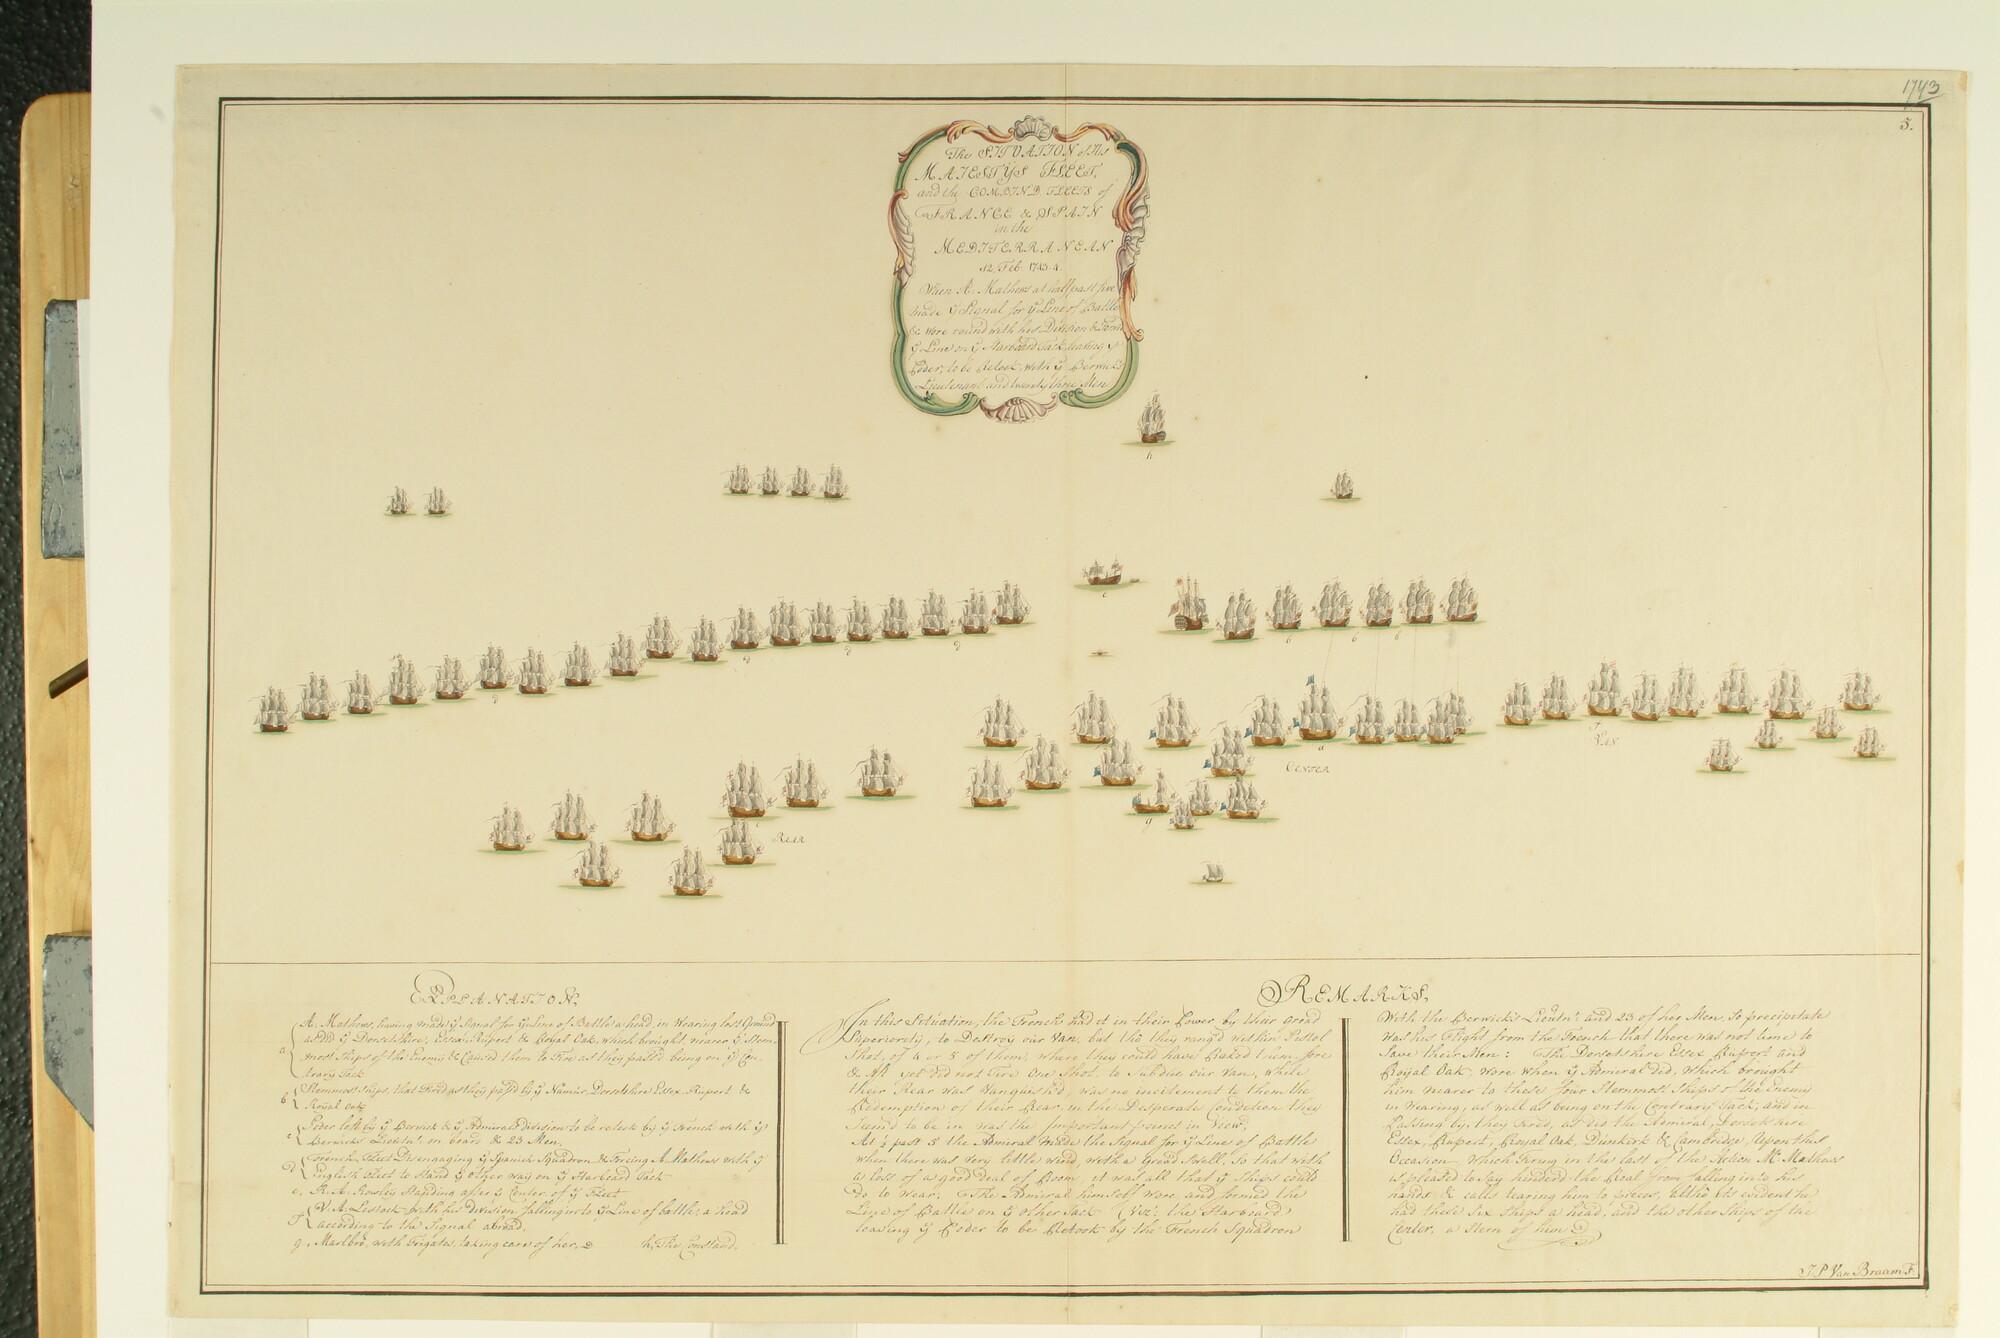 1743
5.
The SITUATION of His
MAJESTYS FLEET,
and the COMBIND FLEETS of
FRANCE & SPAIN
in the
MEDITERRANEAN
12, Feb. 1743-4.
When A. Mathews at half past five
made ỹ Signal for ỹ Line of Battle
& wore round with his Division & Form
ỹ Line on ỹ Starboard Tack, leaving ỹ
Poder, to be Retook, with ỹ Berwick's
Lieutenant and twenty three Men
h
c
b b b
D D D D
a
CENTER
F
VAN
REAR
g
EXPLANATION,
a A. Mathews, having made ỹ Signal for ỹ Line of Battle a head, in Wearing lost Ground
as did ỹ Dorsetshire, Essex, Rupert & Royal Oak, which brought nearer ỹ Stern-
most Ships of the Enemy & Caused them to Fire as they pass'd being on ỹ Con-
trary Tack
b Sternmost Ships, that Fired as they pass'd by ỹ Namur, Dorsetshire Essex, Rupert &
Royal Oak
c Poder left by ỹ Berwick & ỹ Admirals Division to be retook by ỹ French with ỹ
Berwicks Lieutn't. on board & 23 Men.
D French Fleet Disengaging ỹ Spanish Squadron & Forcing A. Mathews with ỹ
English Fleet to Stand ỹ other way on ỹ Starboard Tack
e. R. A. Rowley Standing after ỹ Center of ỹ Fleet
F V. A. Lestock with his Division falling into ỹ Line of battle a head
according to the Signal abroad.
g. Marlbro, with Frigates taking care of her. h, The Constand.
REMARKS,
In this Situation, the French had it in their Power by their great
Superiority, to Destroy our Van, but tho they rang'd within Pistol
Shot, of 4 or 5 of them, where they could have Raked them fore
& Aft yet did not Fire One Shot. to Subdue our Van, while
their Rear was Vanquish'd, was no incitement to them the
Redemption of their Rear, in the Desperate Condition they
seem'd to be in was the Important point in View.
At ½ past 5 the Admiral made the Signal for ỹ Line of Battle
when there was very little wind, with a Great Swell, So that with
a loss of a good deal of Room, it was all that ỹ Ships could
Do to Wear; The Admiral himself Wore and formed the
Line of Battle on ỹ other Tack (Viz: the Starboard
leaving ỹ Poder to be Retook by the French Squadron
With the Berwick's Lieutn't. and 23 of her Men, So precipitate
Was his Flight from the French that there was not time to
Save their Men: The Dorsetshire Essex Rupert and
Royal Oak, Wore when ỹ Admiral Did, Which brought
him nearer to these four Sternmost Ships of the Enemy
in Wearing, as well as being on the Contrary Tack, and in
Passing by, they Fired, as did the Admiral, Dorsetshire
Essex, Rupert, Royal Oak, Dunkirk & Cambridge, Upon this
Occasion, Which Firing in the last of the Action Mr. Mathews
is pleased to Say hinder'd the Real from falling into his
hands & calls tearing him to pieces, altho its evident he
had these Six Ships a head, and the other Ships of the
Center, a Stern of him
J P Van Braam F.